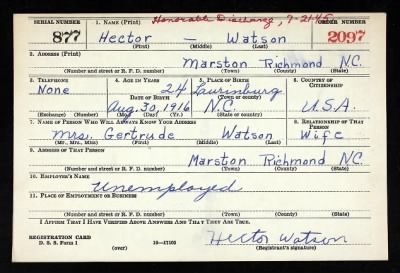 Honorable Discharge, 7-21-45
SERIAL NUMBER 1. NAME (Print) ORDER NUMBER
877 Hector — Watson 2097
(First) (Middle) (Last)
2. ADDRESS (Print)
Marston Richmond N.C.
(Number and street or R. F. D. number) (Town) (County) (State)
3. TELEPHONE 4. AGE IN YEARS 5. PLACE OF BIRTH 6. COUNTRY OF CITIZENSHIP
None 24 Laurinburg
DATE OF BIRTH (Town or county)
Aug. 30, 1916 N.C. U.S.A.
(Exchange) (No.) (Mo.) (Day) (Yr.) (State or country)
7. NAME OF PERSON WHO WILL ALWAYS KNOW YOUR ADDRESS 8. RELATIONSHIP OF THAT PERSON
Mrs. Gertrude Watson Wife
(Mr., Mrs., Miss) (First) (Middle) (Last)
9. ADDRESS OF THAT PERSON
Marston Richmond N.C.
(Number and street or R. F. D. number) (Town) (County) (State)
10. EMPLOYER'S NAME
Unemployed
11. PLACE OF EMPLOYMENT OR BUSINESS
(Number and street or R. F. D. number) (Town) (County) (State)
I AFFIRM THAT I HAVE VERIFIED ABOVE ANSWERS AND THAT THEY ARE TRUE.
REGISTRATION CARD Hector Watson
D. S. S. Form 1 (over) 16—17105 (Registrant's signature)